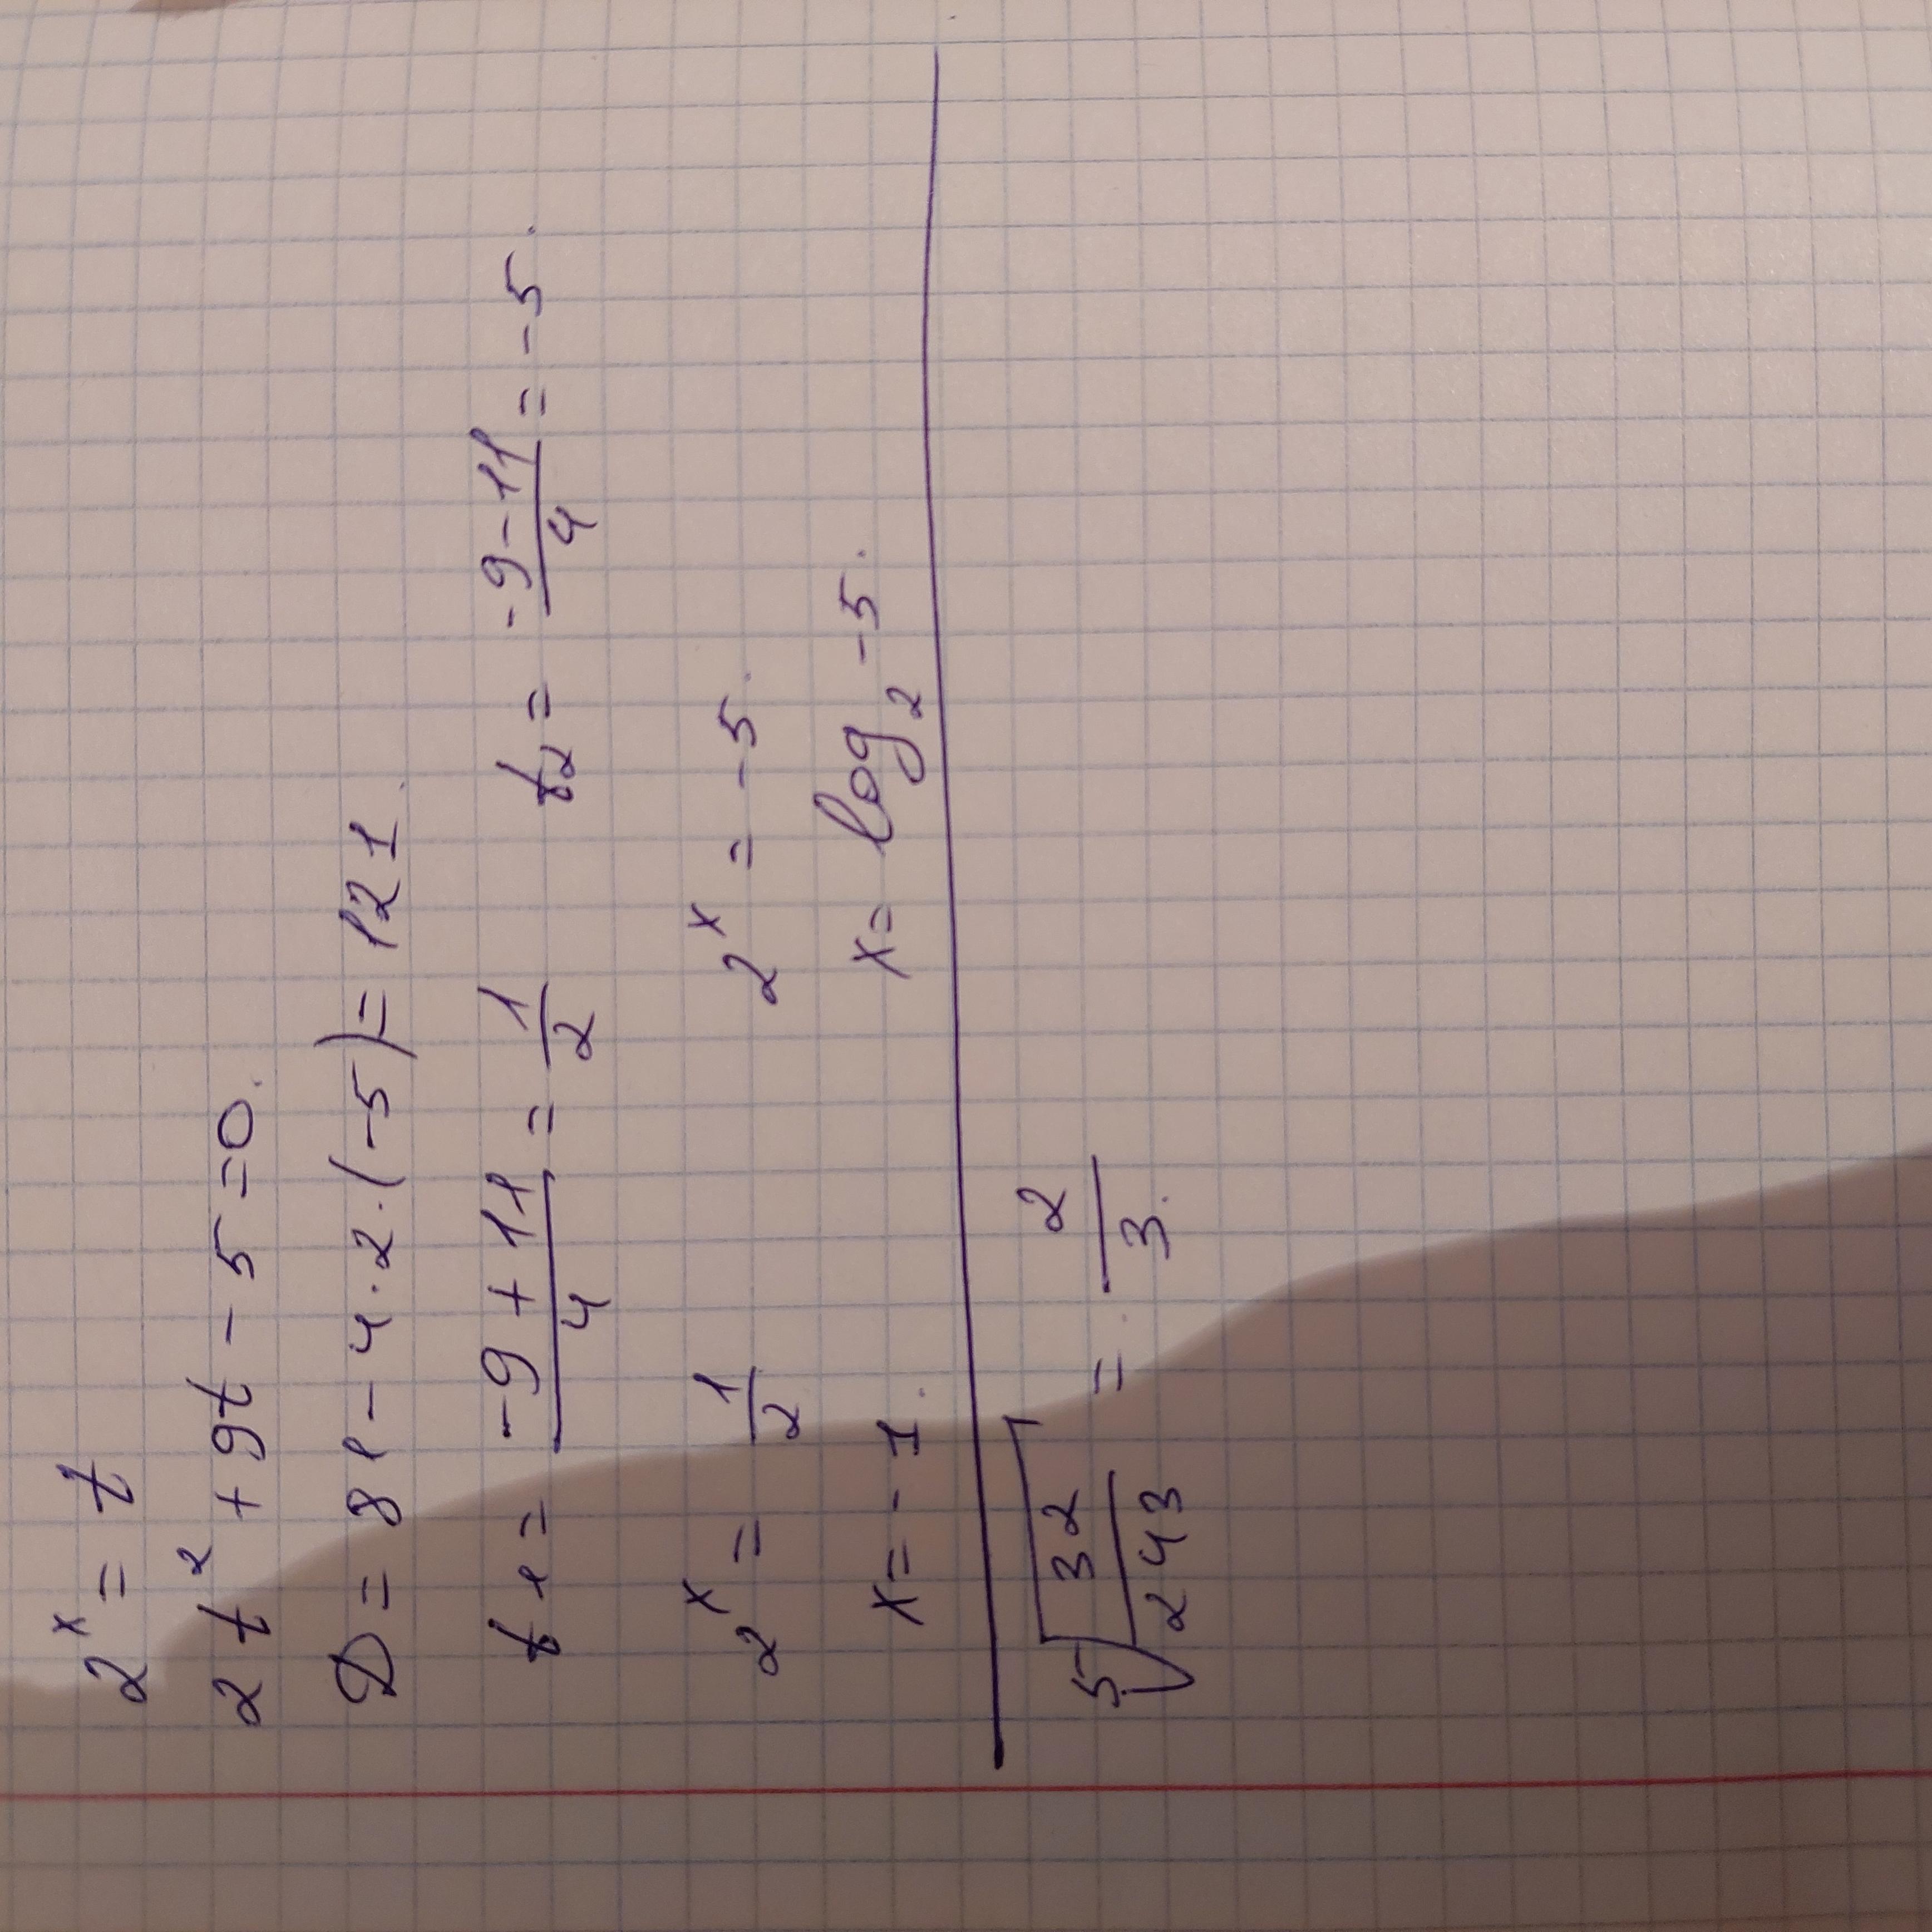 2ˣ = t
2t² + 9t - 5 = 0.
D = 81 - 4·2·(-5) = 121.
t₁ = (-9 + 11)/4 = 1/2 t₂ = (-9 - 11)/4 = -5.
2ˣ = 1/2 2ˣ = -5.
x = -1. x = log₂ -5.
⁵√(32/243) = 2/3.